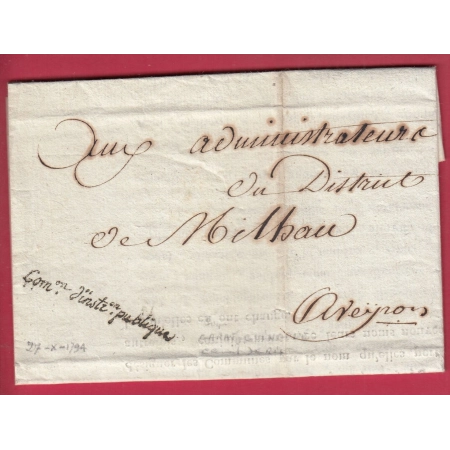 aux administrateurs
du District
de Milhau
Com.on d'instr.on publique
Aveyron
27-X-1794